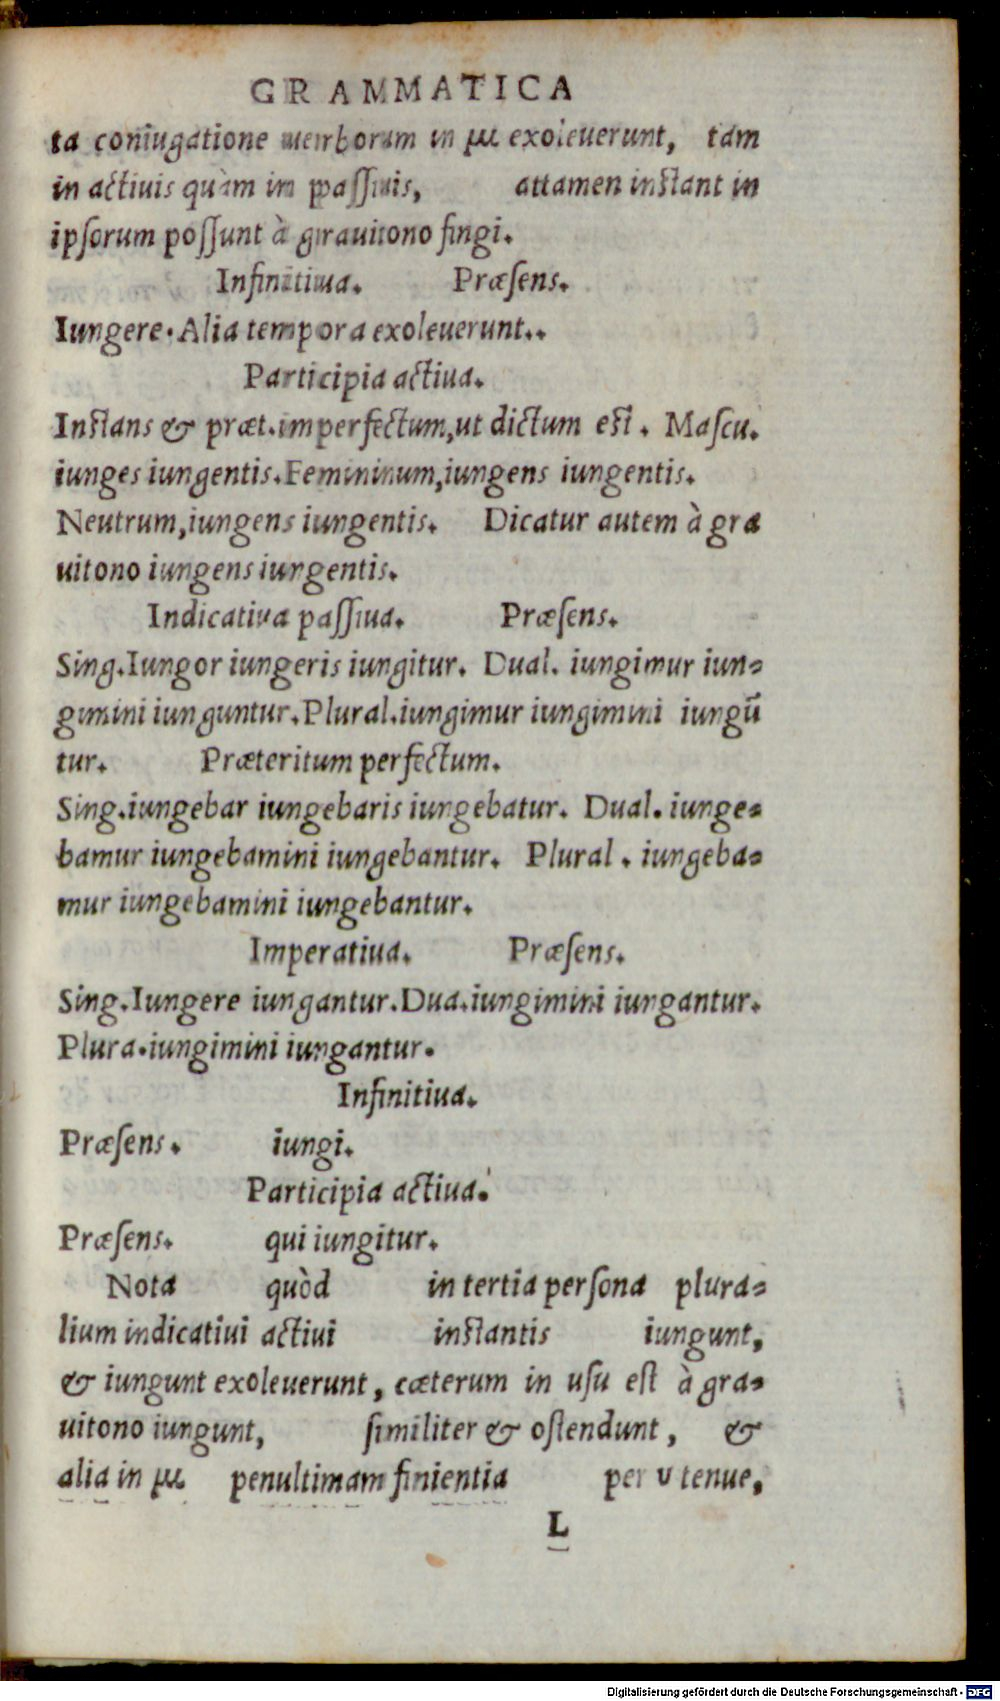 GRAMMATICA
ta coniugatione uerborum in μι exoleuerunt, tam
in actiuis quàm in passiuis, attamen instant in
ipsorum possunt à grauitono fingi.
Infinitiua. Præsens.
Iungere. Alia tempora exoleuerunt..
Participia actiua.
Instans & præt.imperfectum,ut dictum est. Mascu.
iunges iungentis.Femininum,iungens iungentis.
Neutrum,iungens iungentis. Dicatur autem à gra
uitono iungens iungentis.
Indicatiua passiua. Præsens.
Sing.Iungor iungeris iungitur. Dual. iungimur iun-
gimini iunguntur.Plural.iungimur iungimini iungũ
tur. Præteritum perfectum.
Sing.iungebar iungebaris iungebatur. Dual. iunge-
bamur iungebamini iungebantur. Plural. iungeba-
mur iungebamini iungebantur.
Imperatiua. Præsens.
Sing.Iungere iungantur.Dua.iungimini iungantur.
Plura.iungimini iungantur.
Infinitiua.
Præsens. iungi.
Participia actiua.
Præsens. qui iungitur.
Nota quòd in tertia persona plura-
lium indicatiui actiui instantis iungunt,
& iungunt exoleuerunt, cæterum in usu est à gra-
uitono iungunt, similiter & ostendunt, &
alia in μι penultimam finientia per υ tenue,
L
Digitalisierung gefördert durch die Deutsche Forschungsgemeinschaft - DFG